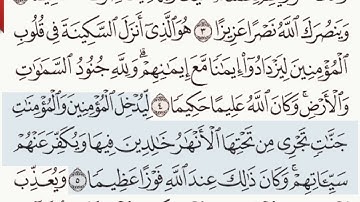 وَيَنصُرَكَ ٱللَّهُ نَصْرًا عَزِيزًا ٣ هُوَ ٱلَّذِىٓ أَنزَلَ ٱلسَّكِينَةَ فِى قُلُوبِ
ٱلْمُؤْمِنِينَ لِيَزْدَادُوٓا۟ إِيمَـٰنًا مَّعَ إِيمَـٰنِهِمْ ۗ وَلِلَّهِ جُنُودُ ٱلسَّمَـٰوَٰتِ
وَٱلْأَرْضِ ۚ وَكَانَ ٱللَّهُ عَلِيمًا حَكِيمًا ٤ لِّيُدْخِلَ ٱلْمُؤْمِنِينَ وَٱلْمُؤْمِنَـٰتِ
جَنَّـٰتٍ تَجْرِى مِن تَحْتِهَا ٱلْأَنْهَـٰرُ خَـٰلِدِينَ فِيهَا وَيُكَفِّرَ عَنْهُمْ
سَيِّـَٔاتِهِمْ ۚ وَكَانَ ذَٰلِكَ عِندَ ٱللَّهِ فَوْزًا عَظِيمًا ٥ وَيُعَذِّبَ